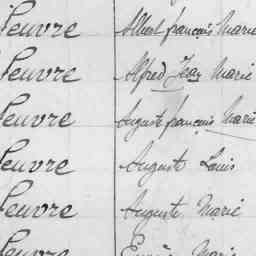 Leuvre Albert françois Marie
Leuvre Alfred Jean Marie
Leuvre Auguste françois Marie
Leuvre Auguste Louis
Leuvre Auguste Marie
Leuvre Eugène Marie